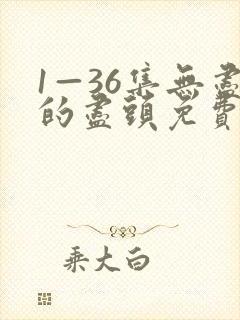 1—36集無盡
的盡頭免費
乘大白